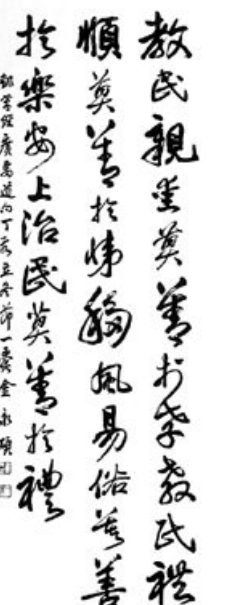 教民親愛莫善於孝教民禮
順莫善於悌移風易俗莫善
於樂安上治民莫善於禮
孝經廣要道句丁亥立冬節一農金永碩